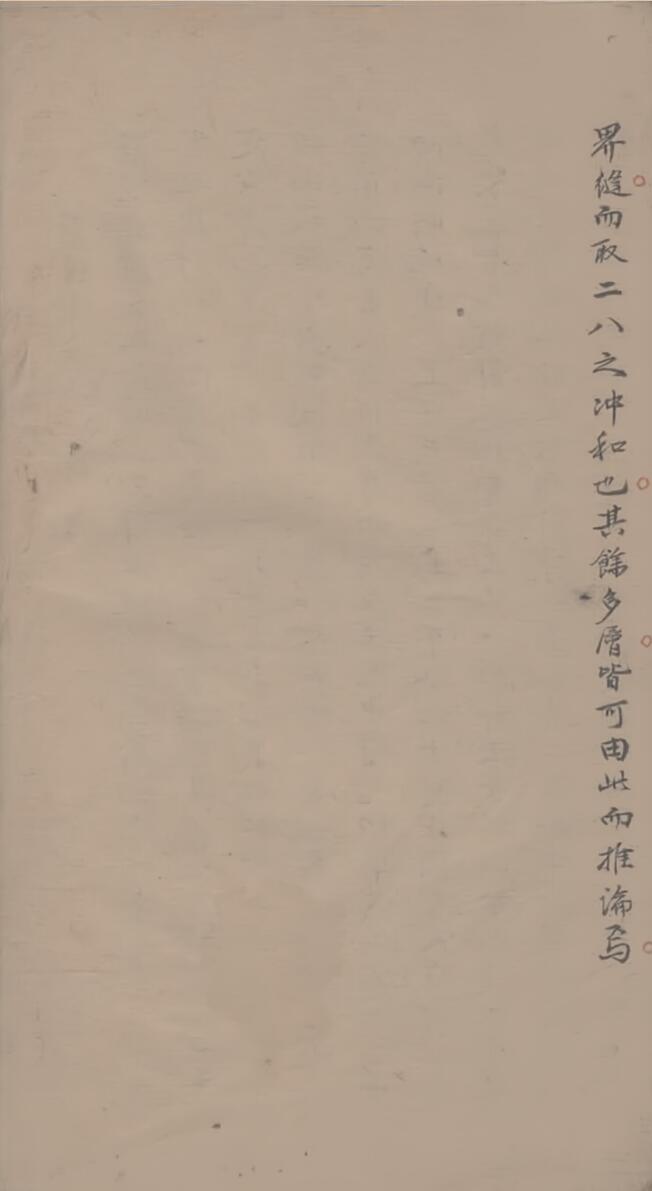 界縫而取二八之冲和也其餘多層皆可由此而推論焉